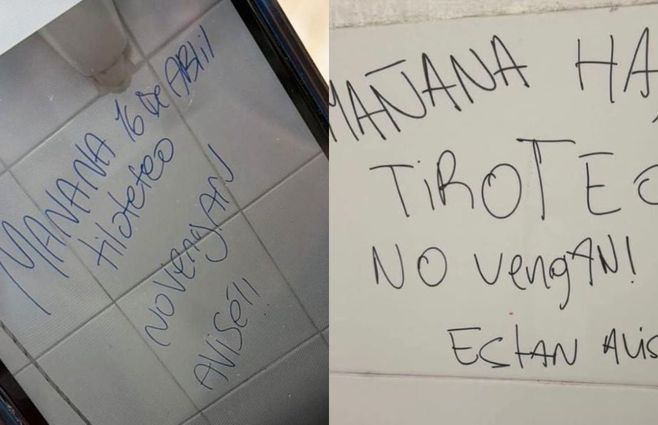 MAÑANA 16 De ABRIL
tiroteo
NO VengAN
AVISÉ!!
MAÑANA HA
TIROTEO
NO VengAN!
ESTAN AVIS